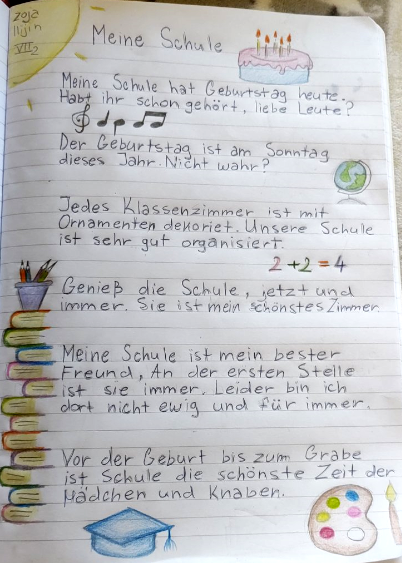 zoja
Ilijin
VII2
Meine Schule
Meine Schule hat Geburtstag heute.
Habt ihr schon gehört, liebe Leute?
Der Geburtstag ist am Sonntag
dieses Jahr. Nicht wahr?
Jedes Klassenzimmer ist mit
Ornamenten dekoriet. Unsere Schule
ist sehr gut organisiert.
2+2=4
Genieß die Schule, jetzt und
immer. Sie ist mein schönstes Zimmer.
Meine Schule ist mein bester
Freund, An der ersten Stelle
ist sie immer. Leider bin ich
dort nicht ewig und für immer.
Vor der Geburt bis zum Grabe
ist Schule die schönste Zeit der
Mädchen und Knaben.